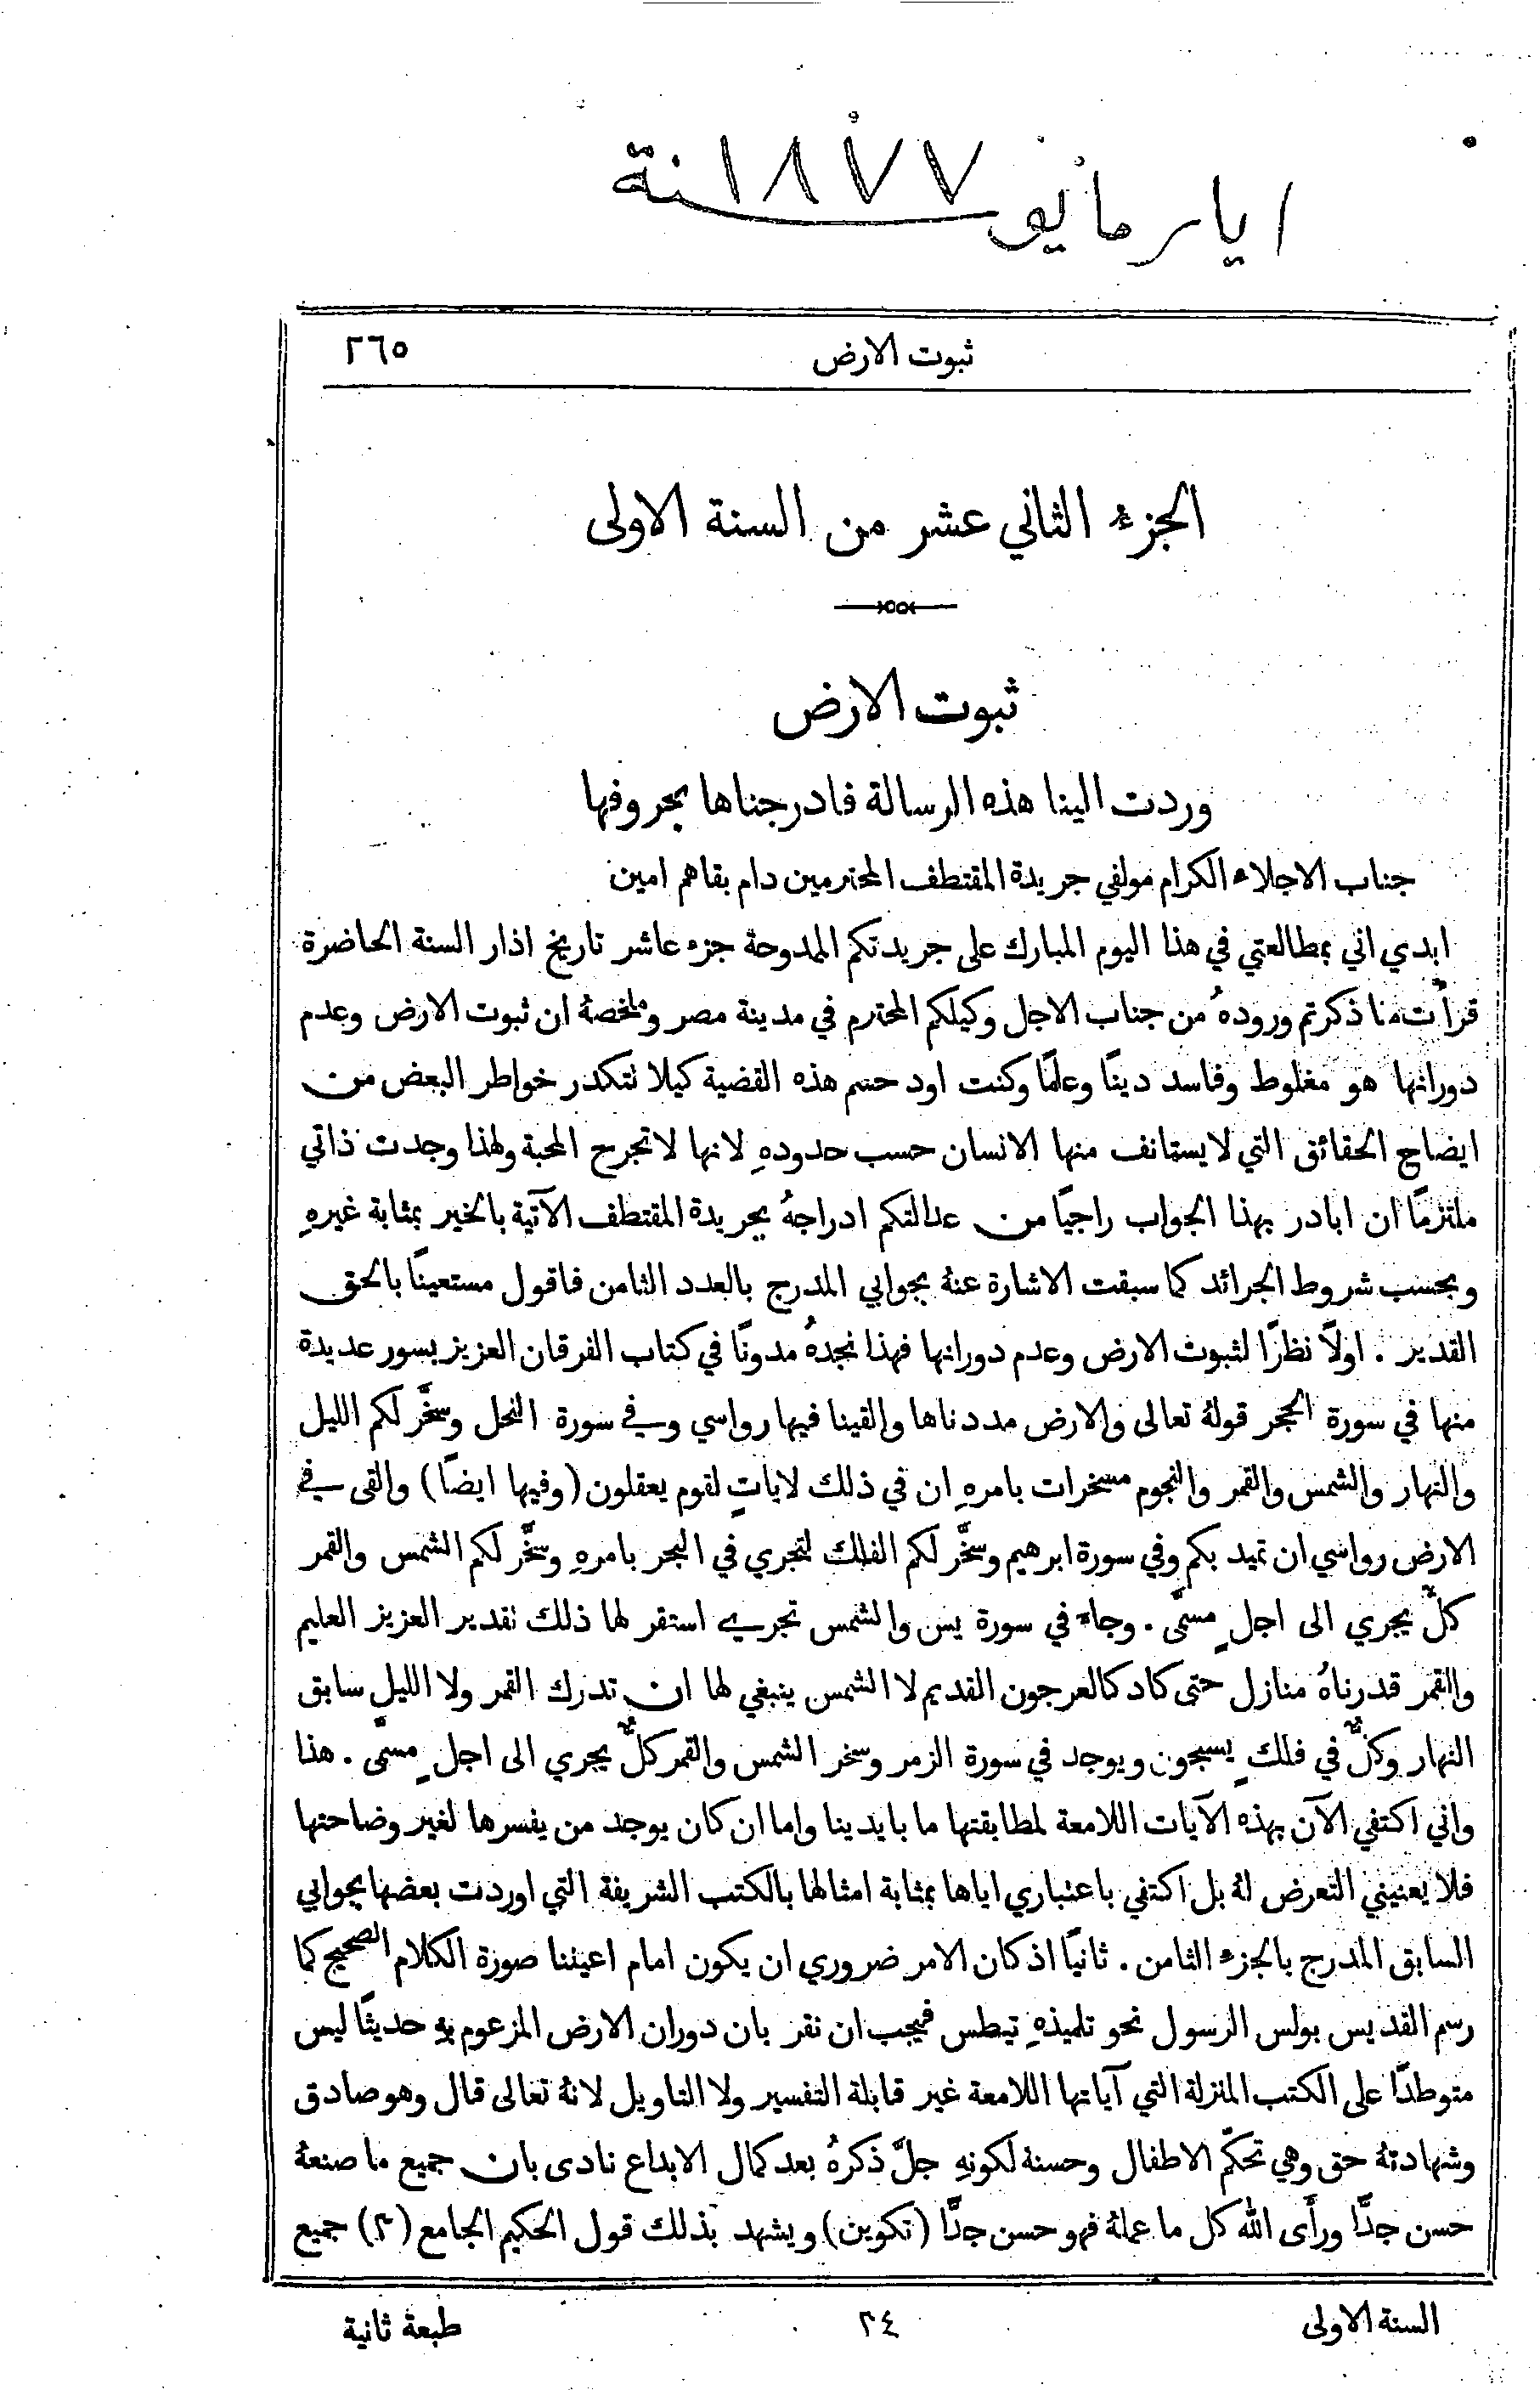 ايار مايو سنة ١٨٧٧
ثبوت الارض ٢٦٥
الجزء الثاني عشر من السنة الاولى
ثبوت الارض
وردت الينا هذه الرسالة فادرجناها بحروفها
جناب الاجلاء الكرام مولفي جريدة المقتطف المحترمين دام بقاهم امين
ابدي اني بمطالعتي في هذا اليوم المبارك على جريدتكم الممدوحة جزء عاشر تاريخ اذار السنة الحاضرة
قرأت منا ذكرتم ورودهُ من جناب الاجل وكيلكم المحترم في مدينة مصر وملخصهُ ان ثبوت الارض وعدم
دورانها هو مغلوط وفاسد دينًا وعلمًا وكنت اود حسم هذه القضية كيلا تتكدر خواطر البعض من
ايضاح الحقائق التي لا يستانف منها الانسان حسب حدودهِ لانها لا تجرح المحبة ولهذا وجدت ذاتي
ملتزمًا ان ابادر بهذا الجواب راجيًا من عدالتكم ادراجهُ بجريدة المقتطف الآتية بالخير بمثابة غيرهِ
وبحسب شروط الجرائد كما سبقت الاشارة عنهُ بجوابي المدرج بالعدد الثامن فاقول مستعينًا بالحق
القدير . اولًا نظرًا لثبوت الارض وعدم دورانها فهذا نجدهُ مدونًا في كتاب الفرقان العزيز بسور عديدة
منها في سورة الحجر قولهُ تعالى والارض مددناها والقينا فيها رواسي وفي سورة النحل وسخَّر لكم الليل
والنهار والشمس والقمر والنجوم مسخرات بامرهِ ان في ذلك لاياتٍ لقوم يعقلون (وفيها ايضًا) والقى في
الارض رواسي ان تميد بكم وفي سورة ابرهيم وسخَّر لكم الفلك لتجري في البحر بامرهِ وسخَّر لكم الشمس والقمر
كلٌّ يجري الى اجلٍ مسمًّى . وجاء في سورة يس والشمس تجري استقر لها ذلك تقدير العزيز العليم
والقمر قدرناهُ منازل حتى كاد كالعرجون القديم لا الشمس ينبغي لها ان تدرك القمر ولا الليل سابق
النهار وكلٌّ في فلكٍ يسبحون ويوجد في سورة الزمر وسخر الشمس والقمر كلٌّ يجري الى اجلٍ مسمًّى . هذا
واني اكتفي الآن بهذه الآيات اللامعة لمطابقتها ما بايدينا واما ان كان يوجد من يفسرها لغير وضاحتها
فلا يعنيني التعرض لهُ بل اكتفي باعتباري اياها بمثابة امثالها بالكتب الشريفة التي اوردت بعضها بجوابي
السابق المدرج بالجزء الثامن . ثانيًا اذ كان الامر ضروري ان يكون امام اعيننا صورة الكلام الصحيح كما
رسم القديس بولس الرسول نحو تلميذهِ تيطس فيجب ان نقر بان دوران الارض المزعوم بهِ حديثًا ليس
متوطدًا على الكتب المنزلة التي آياتها اللامعة غير قابلة التفسير ولا التاويل لانهُ تعالى قال وهو صادق
وشهادتهُ حق وهي تحكّم الاطفال وحسنة لكونهِ جلَّ ذكرهُ بعد كمال الابداع نادى بان جميع ما صنعهُ
حسن جدًّا ورأَى الله كل ما عملهُ فهو حسن جدًّا (تكوين) ويشهد بذلك قول الحكيم الجامع (٣) جميع
السنة الاولى ٣٤ طبعة ثانية